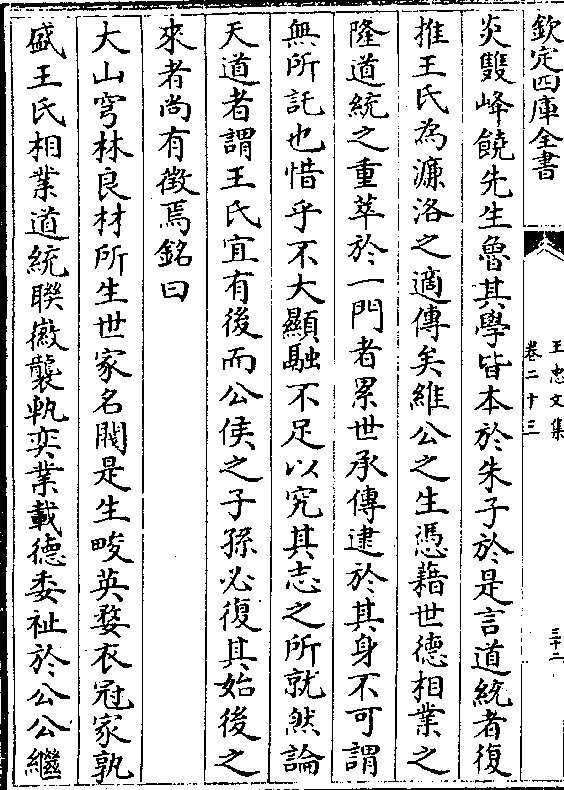 欽定四庫全書
王忠文集
卷二十三
三十二
炎雙峰饒先生魯其學皆本於朱子於是言道統者復
推王氏為濂洛之適傳矣維公之生憑藉世德相業之
隆道統之重萃於一門者累世承傳逮於其身不可謂
無所託也惜乎不大顯融不足以究其志之所就然論
天道者謂王氏宜有後而公侯之子孫必復其始後之
來者尚有徵焉銘曰
大山穹林良材所生世家名閥是生畯英婺衣冠家孰
盛王氏相業道統聯徽襲軌奕業載德委祉於公公繼